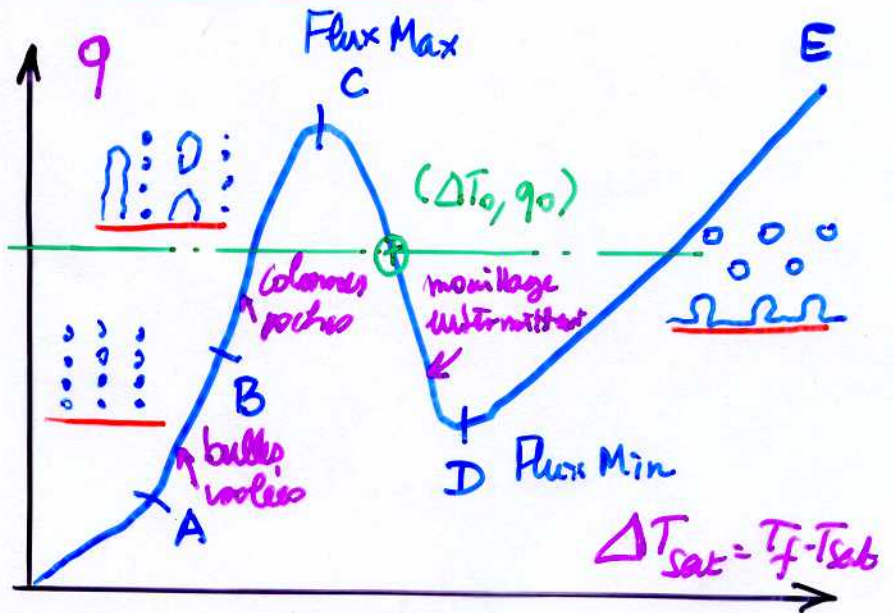 q
Flux Max
C
E
(ΔT₀, q₀)
colonnes
poches
mouillage
intermittent
B
bulles
isolées
A
D
Flux Min
ΔTsat = Tf - Tsat